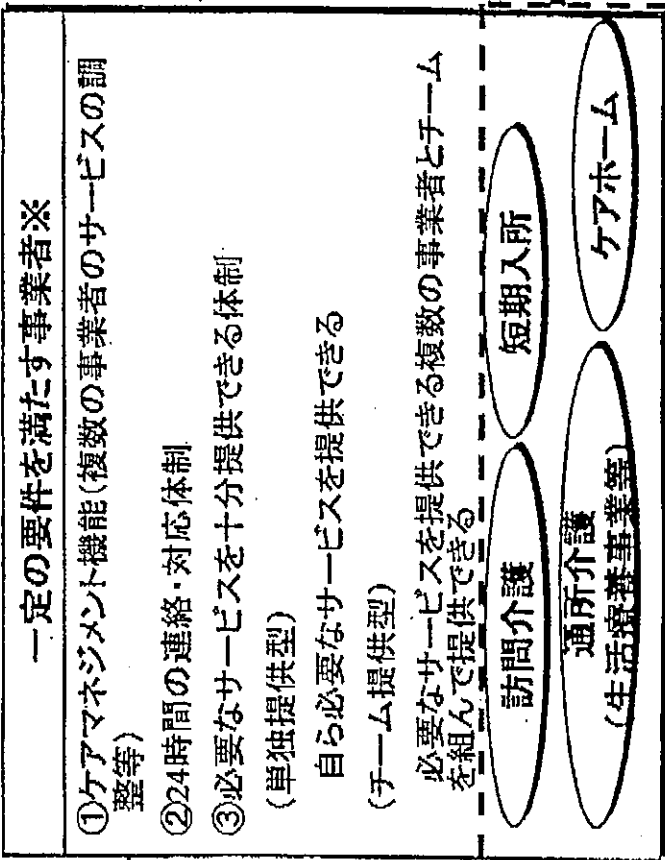 一定の要件を満たす事業者※
①ケアマネジメント機能(複数の事業者のサービスの調
整等)
②24時間の連絡・対応体制
③必要なサービスを十分提供できる体制
(単独提供型)
自ら必要なサービスを提供できる
(チーム提供型)
必要なサービスを提供できる複数の事業者とチーム
を組んで提供できる
訪問介護
短期入所
通所介護
(生活療養事業等)
ケアホーム